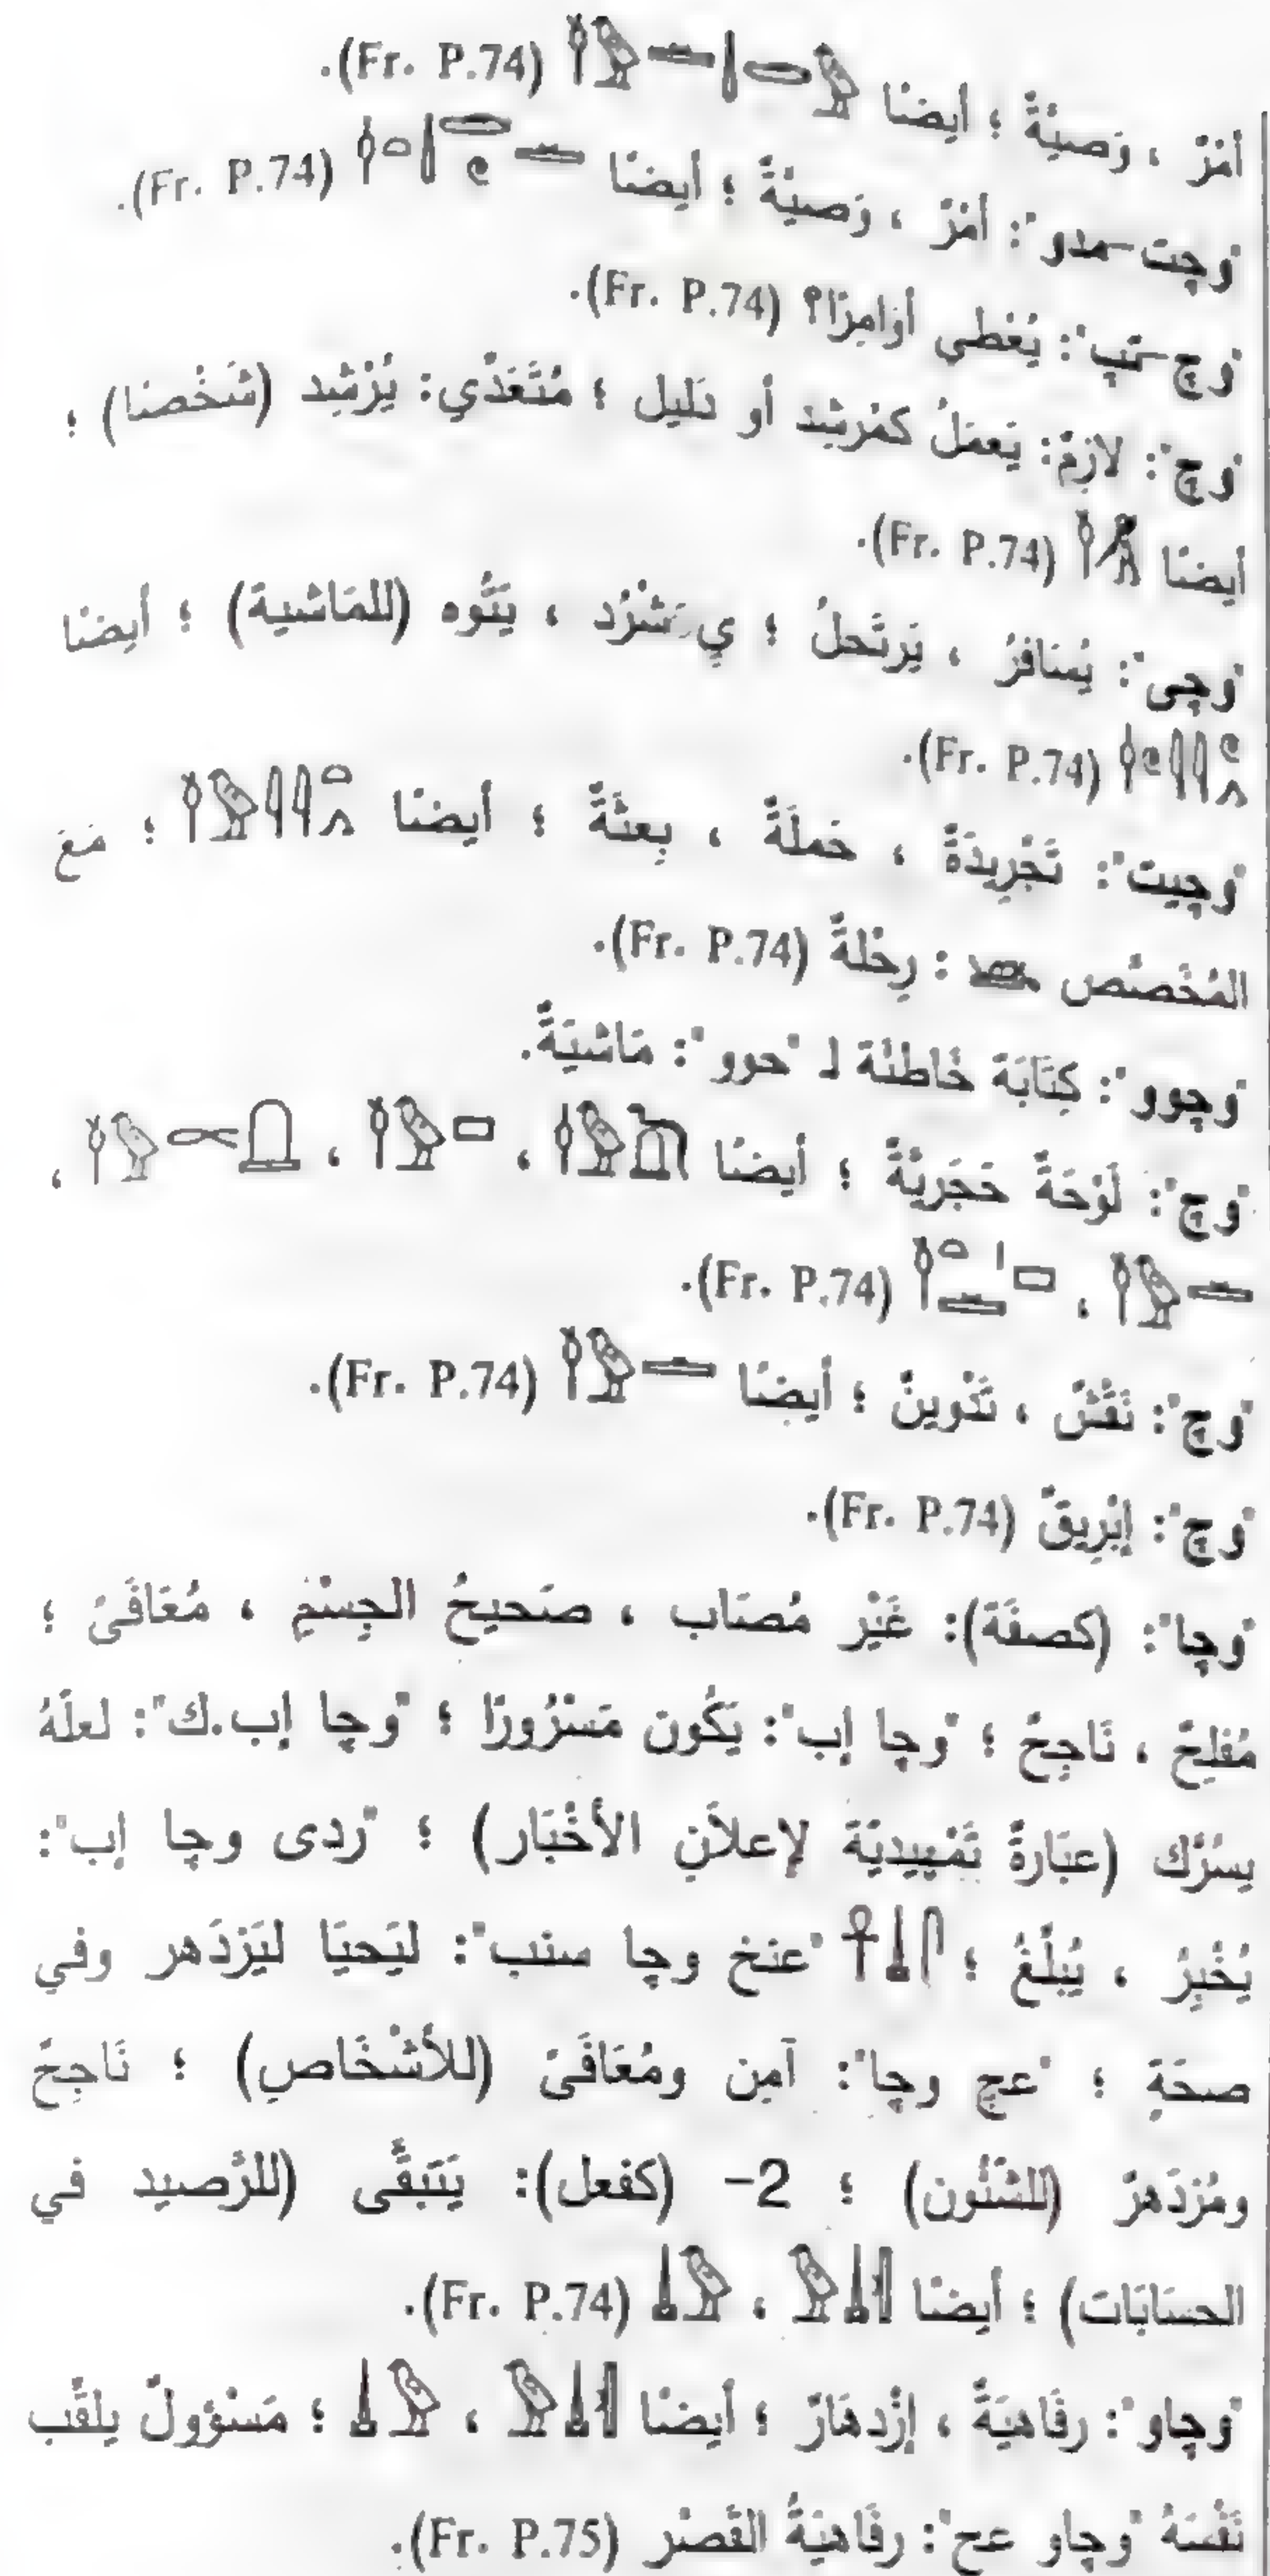 أَمْرٌ ، وَصِيَّةٌ ؛ أيضًا (Fr. P.74).
"وچت-مدو": أَمْرٌ ، وَصِيَّةٌ ؛ أيضًا (Fr. P.74).
"وچ-تپ": يُعْطي أوَامِرًا؟ (Fr. P.74).
"وچ": لازِمٌ: يَعمَلُ كمُرشِد أو دَليل ؛ مُتَعَدِّي: يُرْشِد (شَخْصًا) ؛
أيضًا (Fr. P.74).
"وچى": يُسَافرُ ، يَرتَحلُ ؛ يتَشَرَّد ، يَتُوه (للمَاشية) ؛ أيضًا
(Fr. P.74).
"وچيت": تَجْرِيدَةٌ ، حَملَةٌ ، بِعثَةٌ ؛ أيضًا ؛ مَعَ
المُخَصَّص : رِحْلةٌ (Fr. P.74).
"وچوو": كِتَابَة خَاطئَة لـ "حوو": مَاشيَةٌ.
"وچ": لَوْحَةٌ حَجَريَّةٌ ؛ أيضًا ، ، ،
، (Fr. P.74).
"وچ": نَقْشٌ ، تَدْوينٌ ؛ أيضًا (Fr. P.74).
"وچ": إبْرِيقٌ (Fr. P.74).
"وچا": (كصفَة): غَيْر مُصَاب ، صَحيحُ الجِسْمِ ، مُعَافَىً ؛
مُفلِحٌ ، نَاجِحٌ ؛ "وچا إب": يَكُون مَسْرُورًا ؛ "وچا إب.ك": لعلَّهُ
يسُرَّك (عبَارةٌ تَمْهيديَّة لإعلاَنِ الأخْبَار) ؛ "ردى وچا إب":
يُخْبِرُ ، يُبَلِّغُ ؛ "عنخ وچا سنب": ليَحيَا ليَزدَهر وفي
صحَةٍ ؛ "عچ وچا": آمِن ومُعَافَىً (للأشْخَاصِ) ؛ نَاجِحٌ
ومُزدَهرٌ (للشئُون) ؛ 2- (كفعل): يَتَبَقَّى (للرَّصيد في
الحسَابَات) ؛ أيضًا ، (Fr. P.74).
"وچاو": رفَاهيَةٌ ، إزْدهَارٌ ؛ أيضًا ، ؛ مَسْؤولٌ يلقِّب
نَفْسَهُ "وچاو عح": رفَاهيَةُ القَصْر (Fr. P.75).